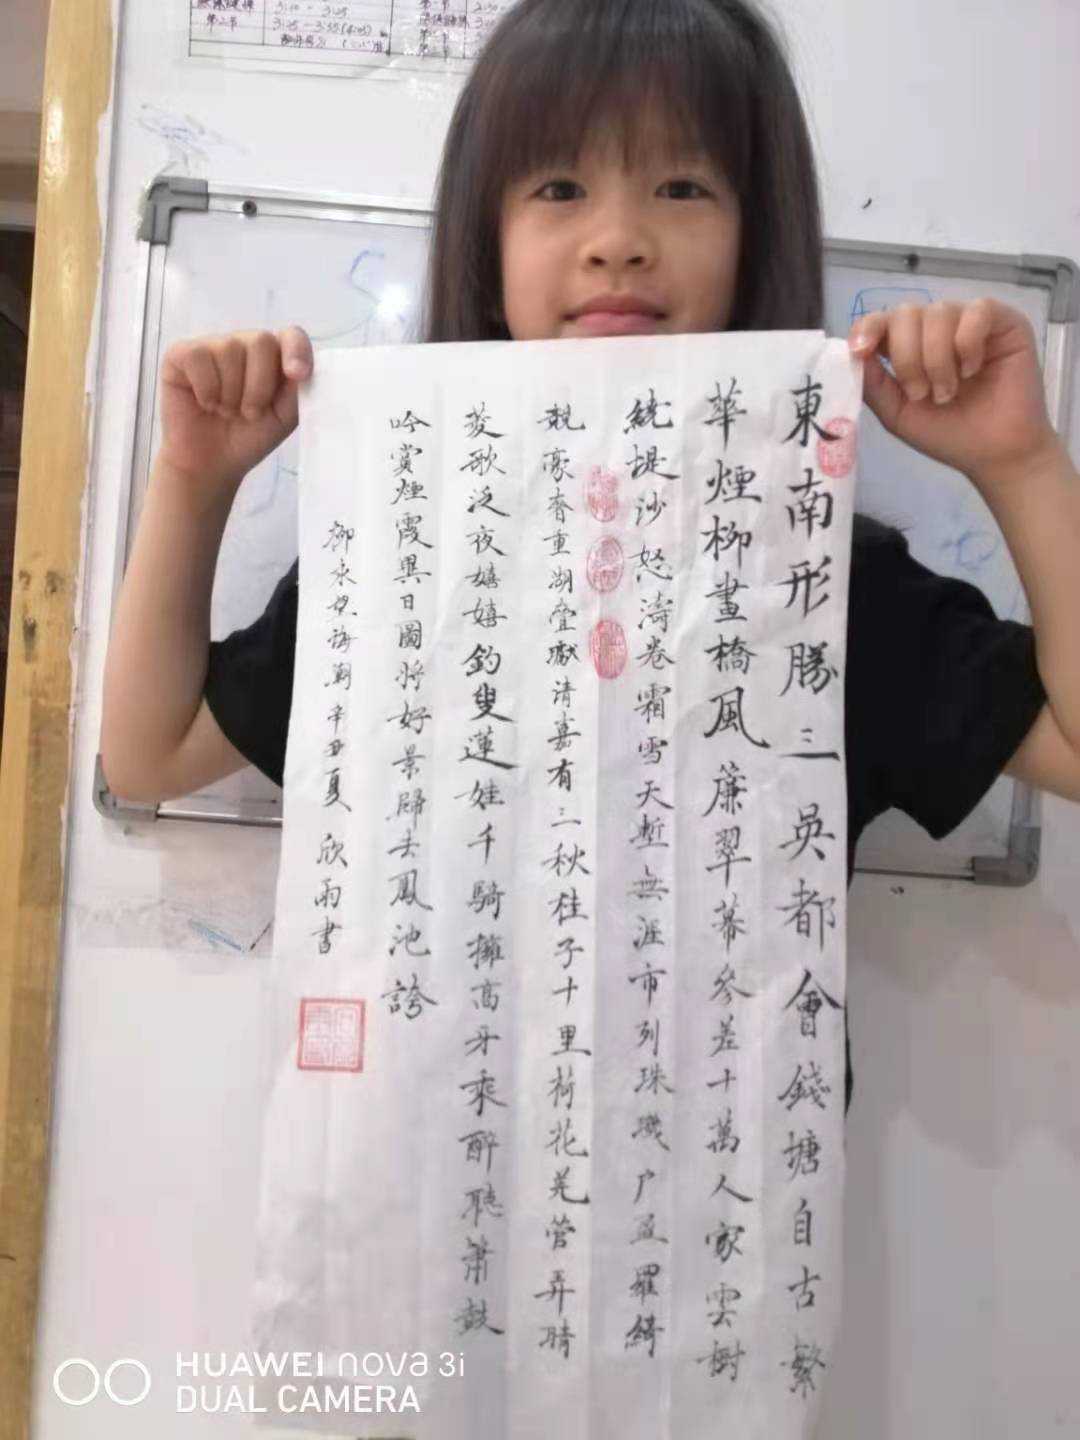 第二节 3:25 - 3:55(4:05)
東南形勝三吳都會錢塘自古繁
華煙柳畫橋風簾翠幕參差十萬人家雲樹
繞堤沙怒濤卷霜雪天塹無涯市列珠璣户盈羅綺
競豪奢重湖疊巘清嘉有三秋桂子十里荷花羌管弄晴
菱歌泛夜嬉嬉釣叟蓮娃千騎擁高牙乘醉聽簫鼓
吟賞煙霞異日圖將好景歸去鳳池誇
柳永望海潮辛丑夏欣雨書
HUAWEI nova 3i
DUAL CAMERA